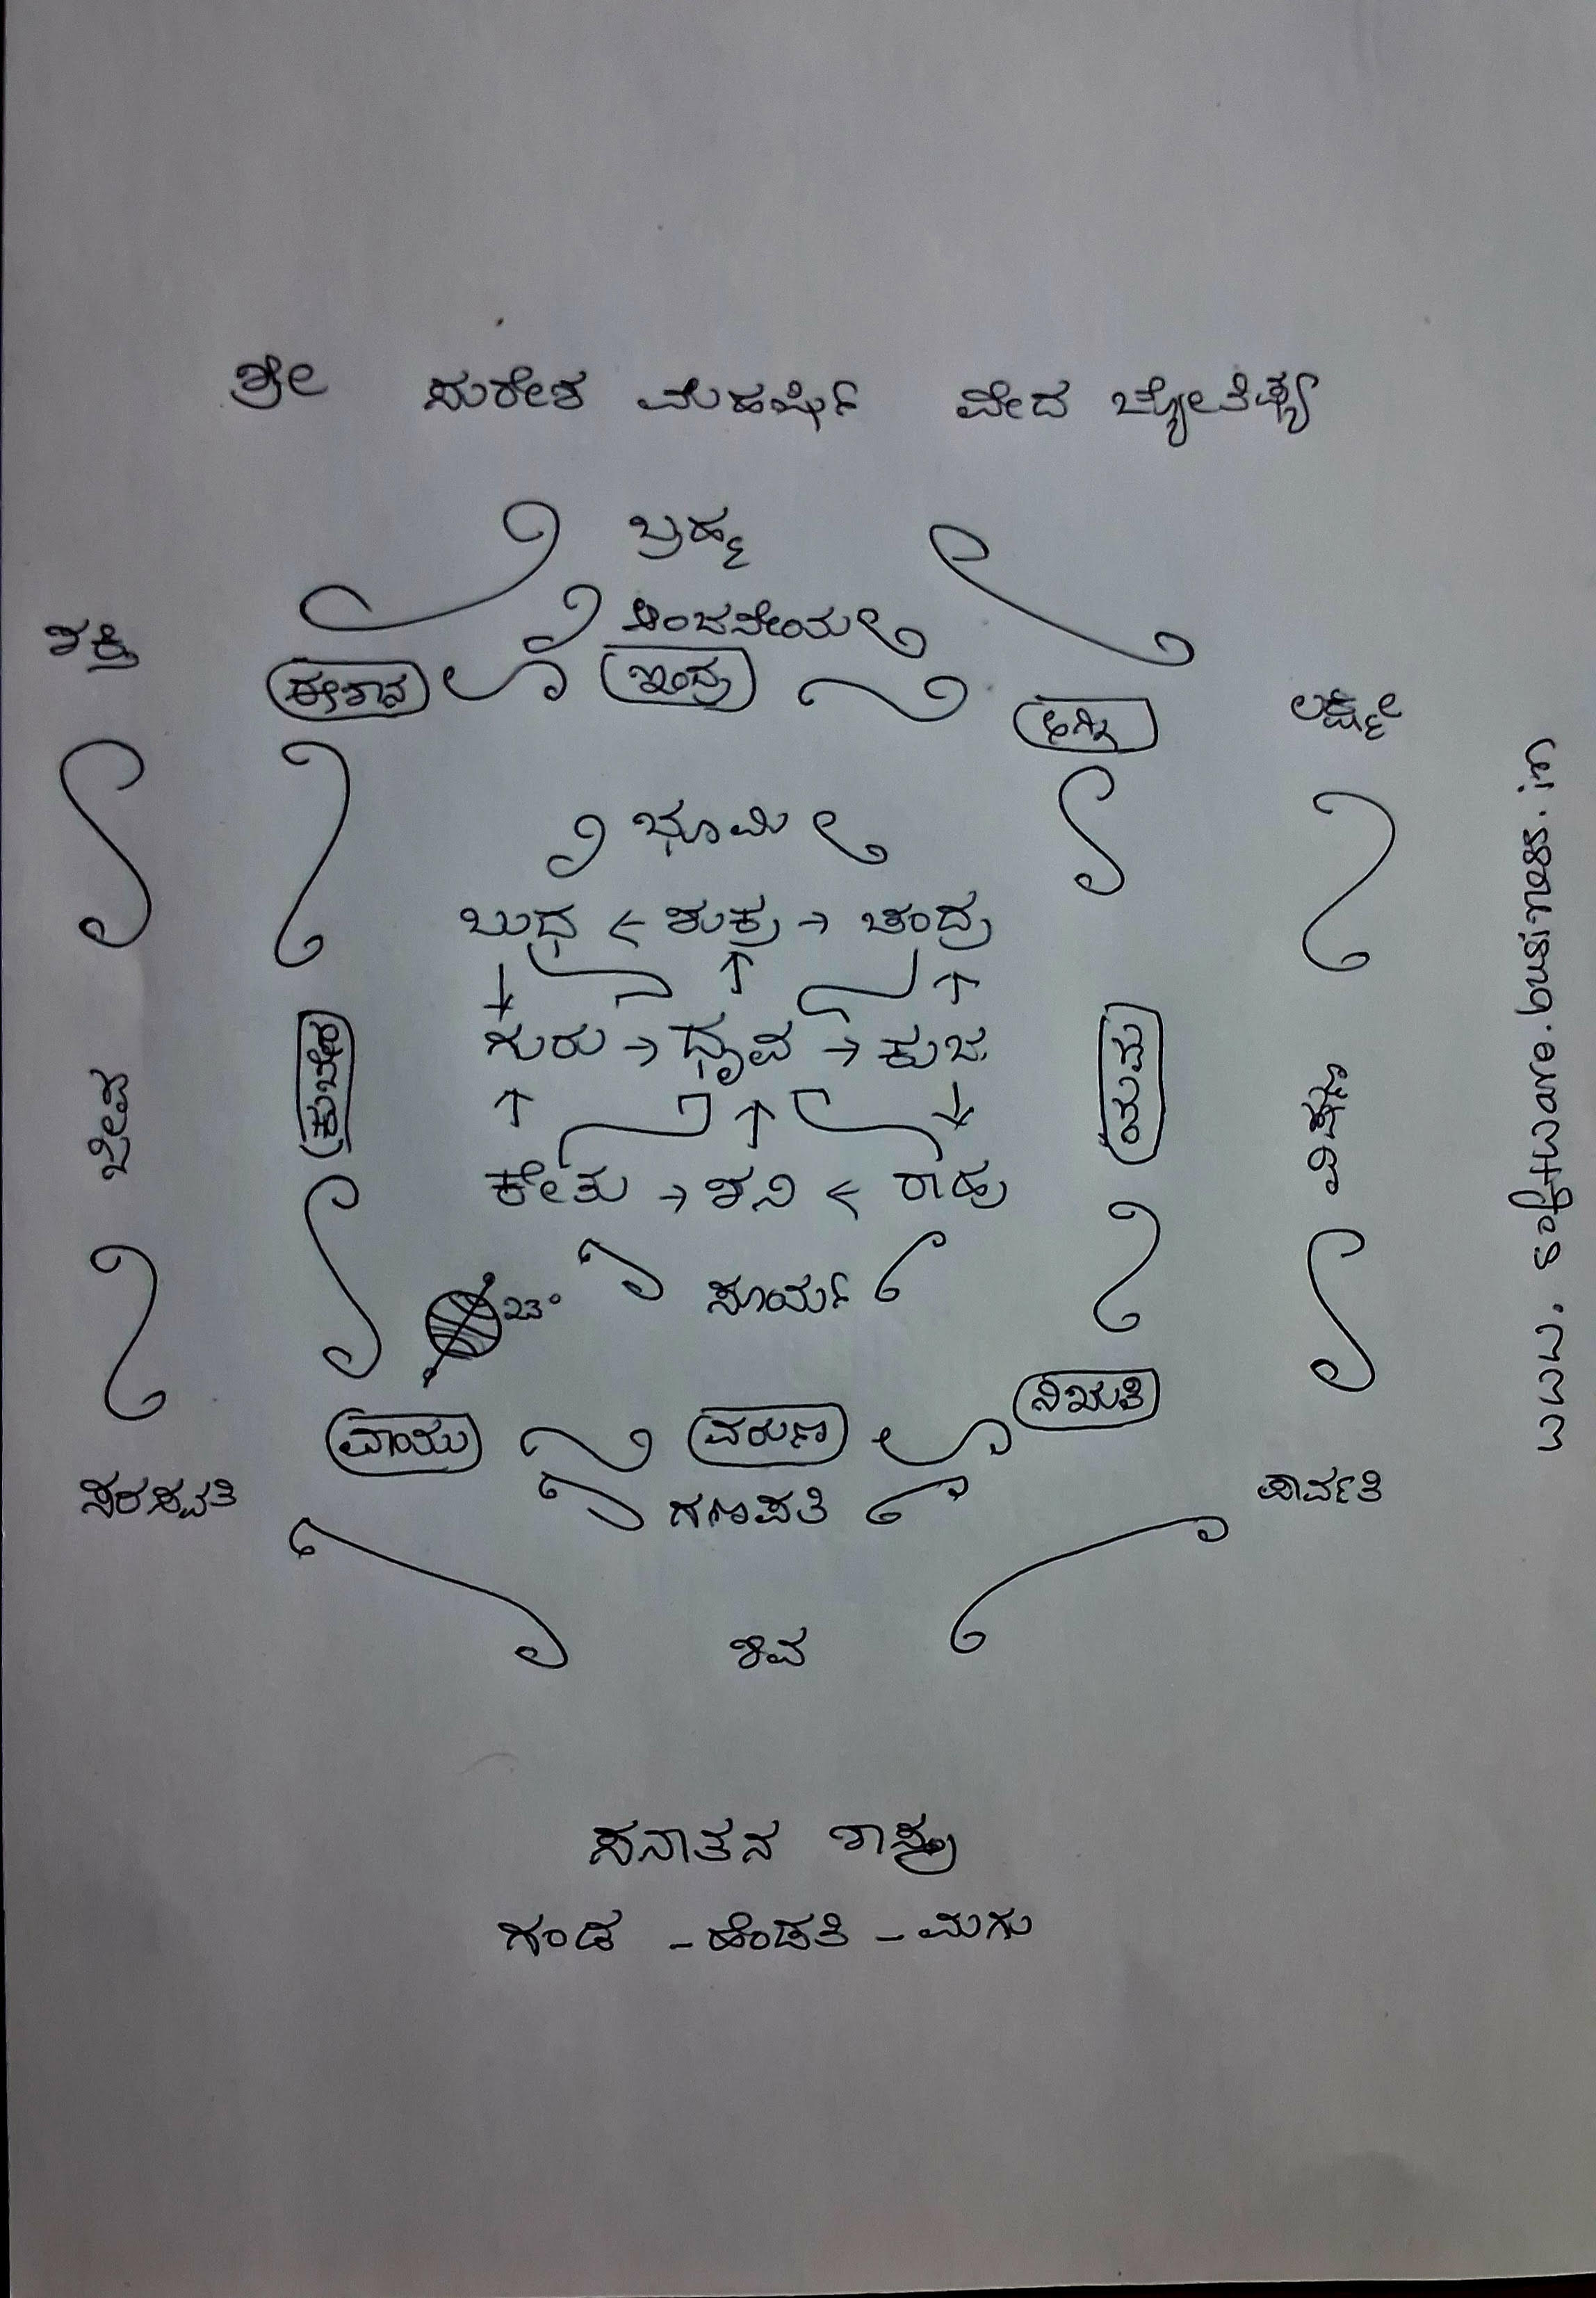 ಶ್ರೀ ಸುರೇಶ ಮಹರ್ಷಿ ವೇದ ಜ್ಯೋತಿಷ್ಯ
ಬ್ರಹ್ಮ
ಆಂಜನೇಯ
ಶಕ್ತಿ
ಈಶಾನ ಇಂದ್ರ ಅಗ್ನಿ ಲಕ್ಷ್ಮೀ
ಭೂಮಿ
ಬುಧ ← ಶುಕ್ರ → ಚಂದ್ರ
↓ ↑ ↑
ಗುರು → ಧೃವ → ಕುಜ
↑ ↑ ↓
ಕೇತು → ಶನಿ ← ರಾಹು
ಜೀವ
ಕುಬೇರ
ಯಮ
ವಿಷ್ಣು
23° ಸೂರ್ಯ
ವಾಯು ವರುಣ ನಿಋತಿ
ಸರಸ್ವತಿ ಗಣಪತಿ ಪಾರ್ವತಿ
ಶಿವ
ಸನಾತನ ಶಾಸ್ತ್ರ
ಗಂಡ - ಹೆಂಡತಿ - ಮಗು
www.software.business.in